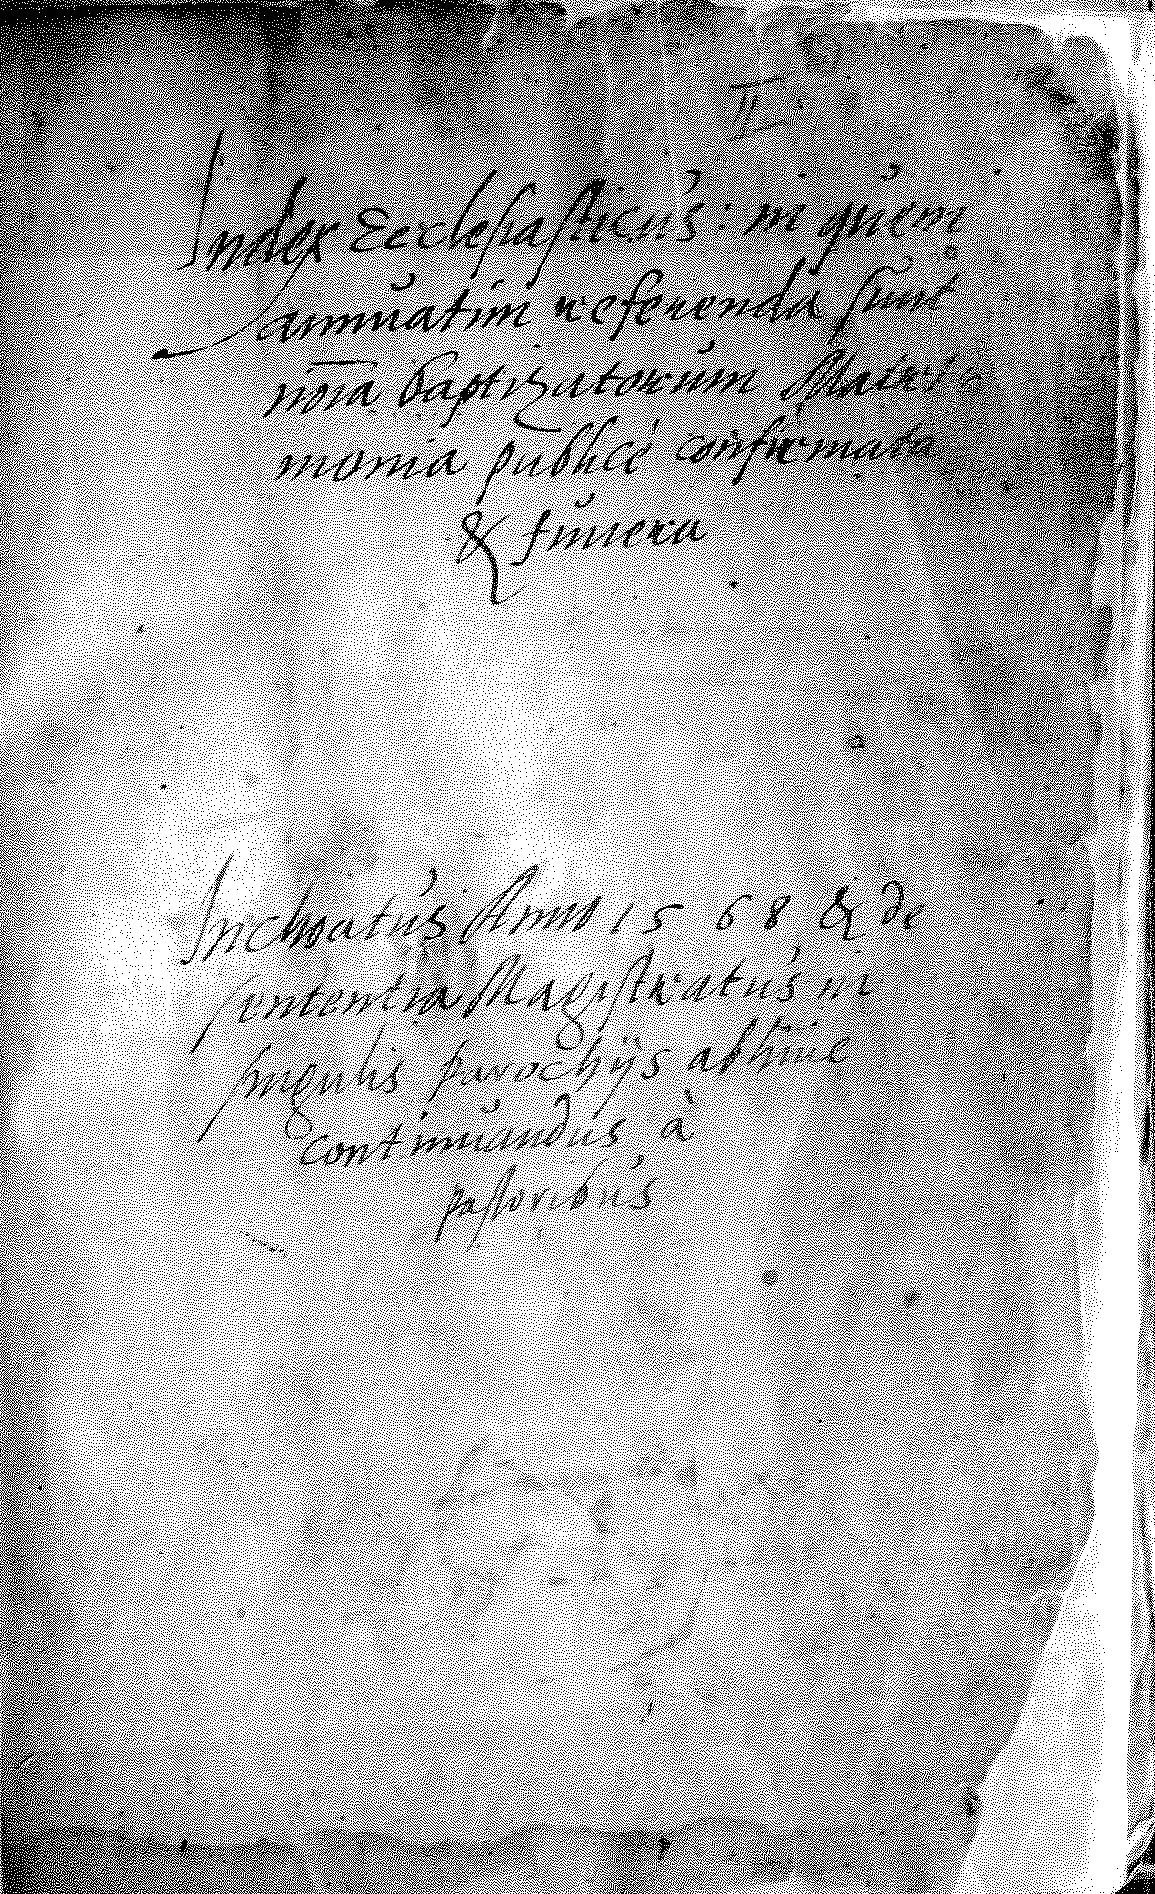 I.
Index Ecclesiasticus: in quem
annuatim referenda sunt
no͞ia baptizatorum Matri
monia publicè confirmata
& funera
Inchoatus Anno 1568 & de
sententia Magistratus in
singulis parochijs abhinc
continuandus à
pastoribus